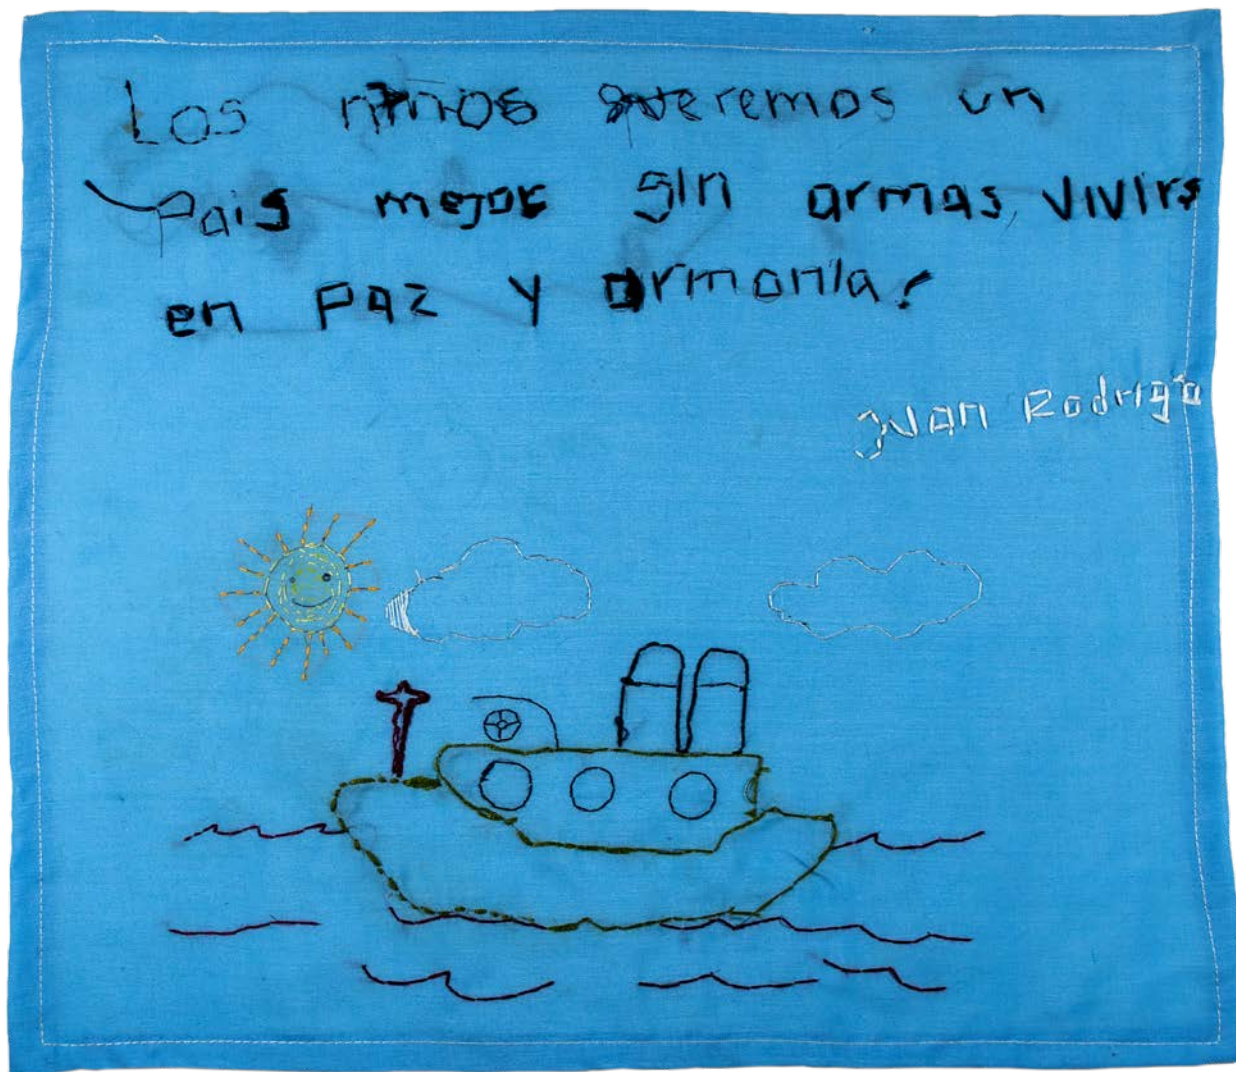 Los niños queremos un
Pais mejor sin armas, vivirs
en paz y armonia!
Juan Rodrigo